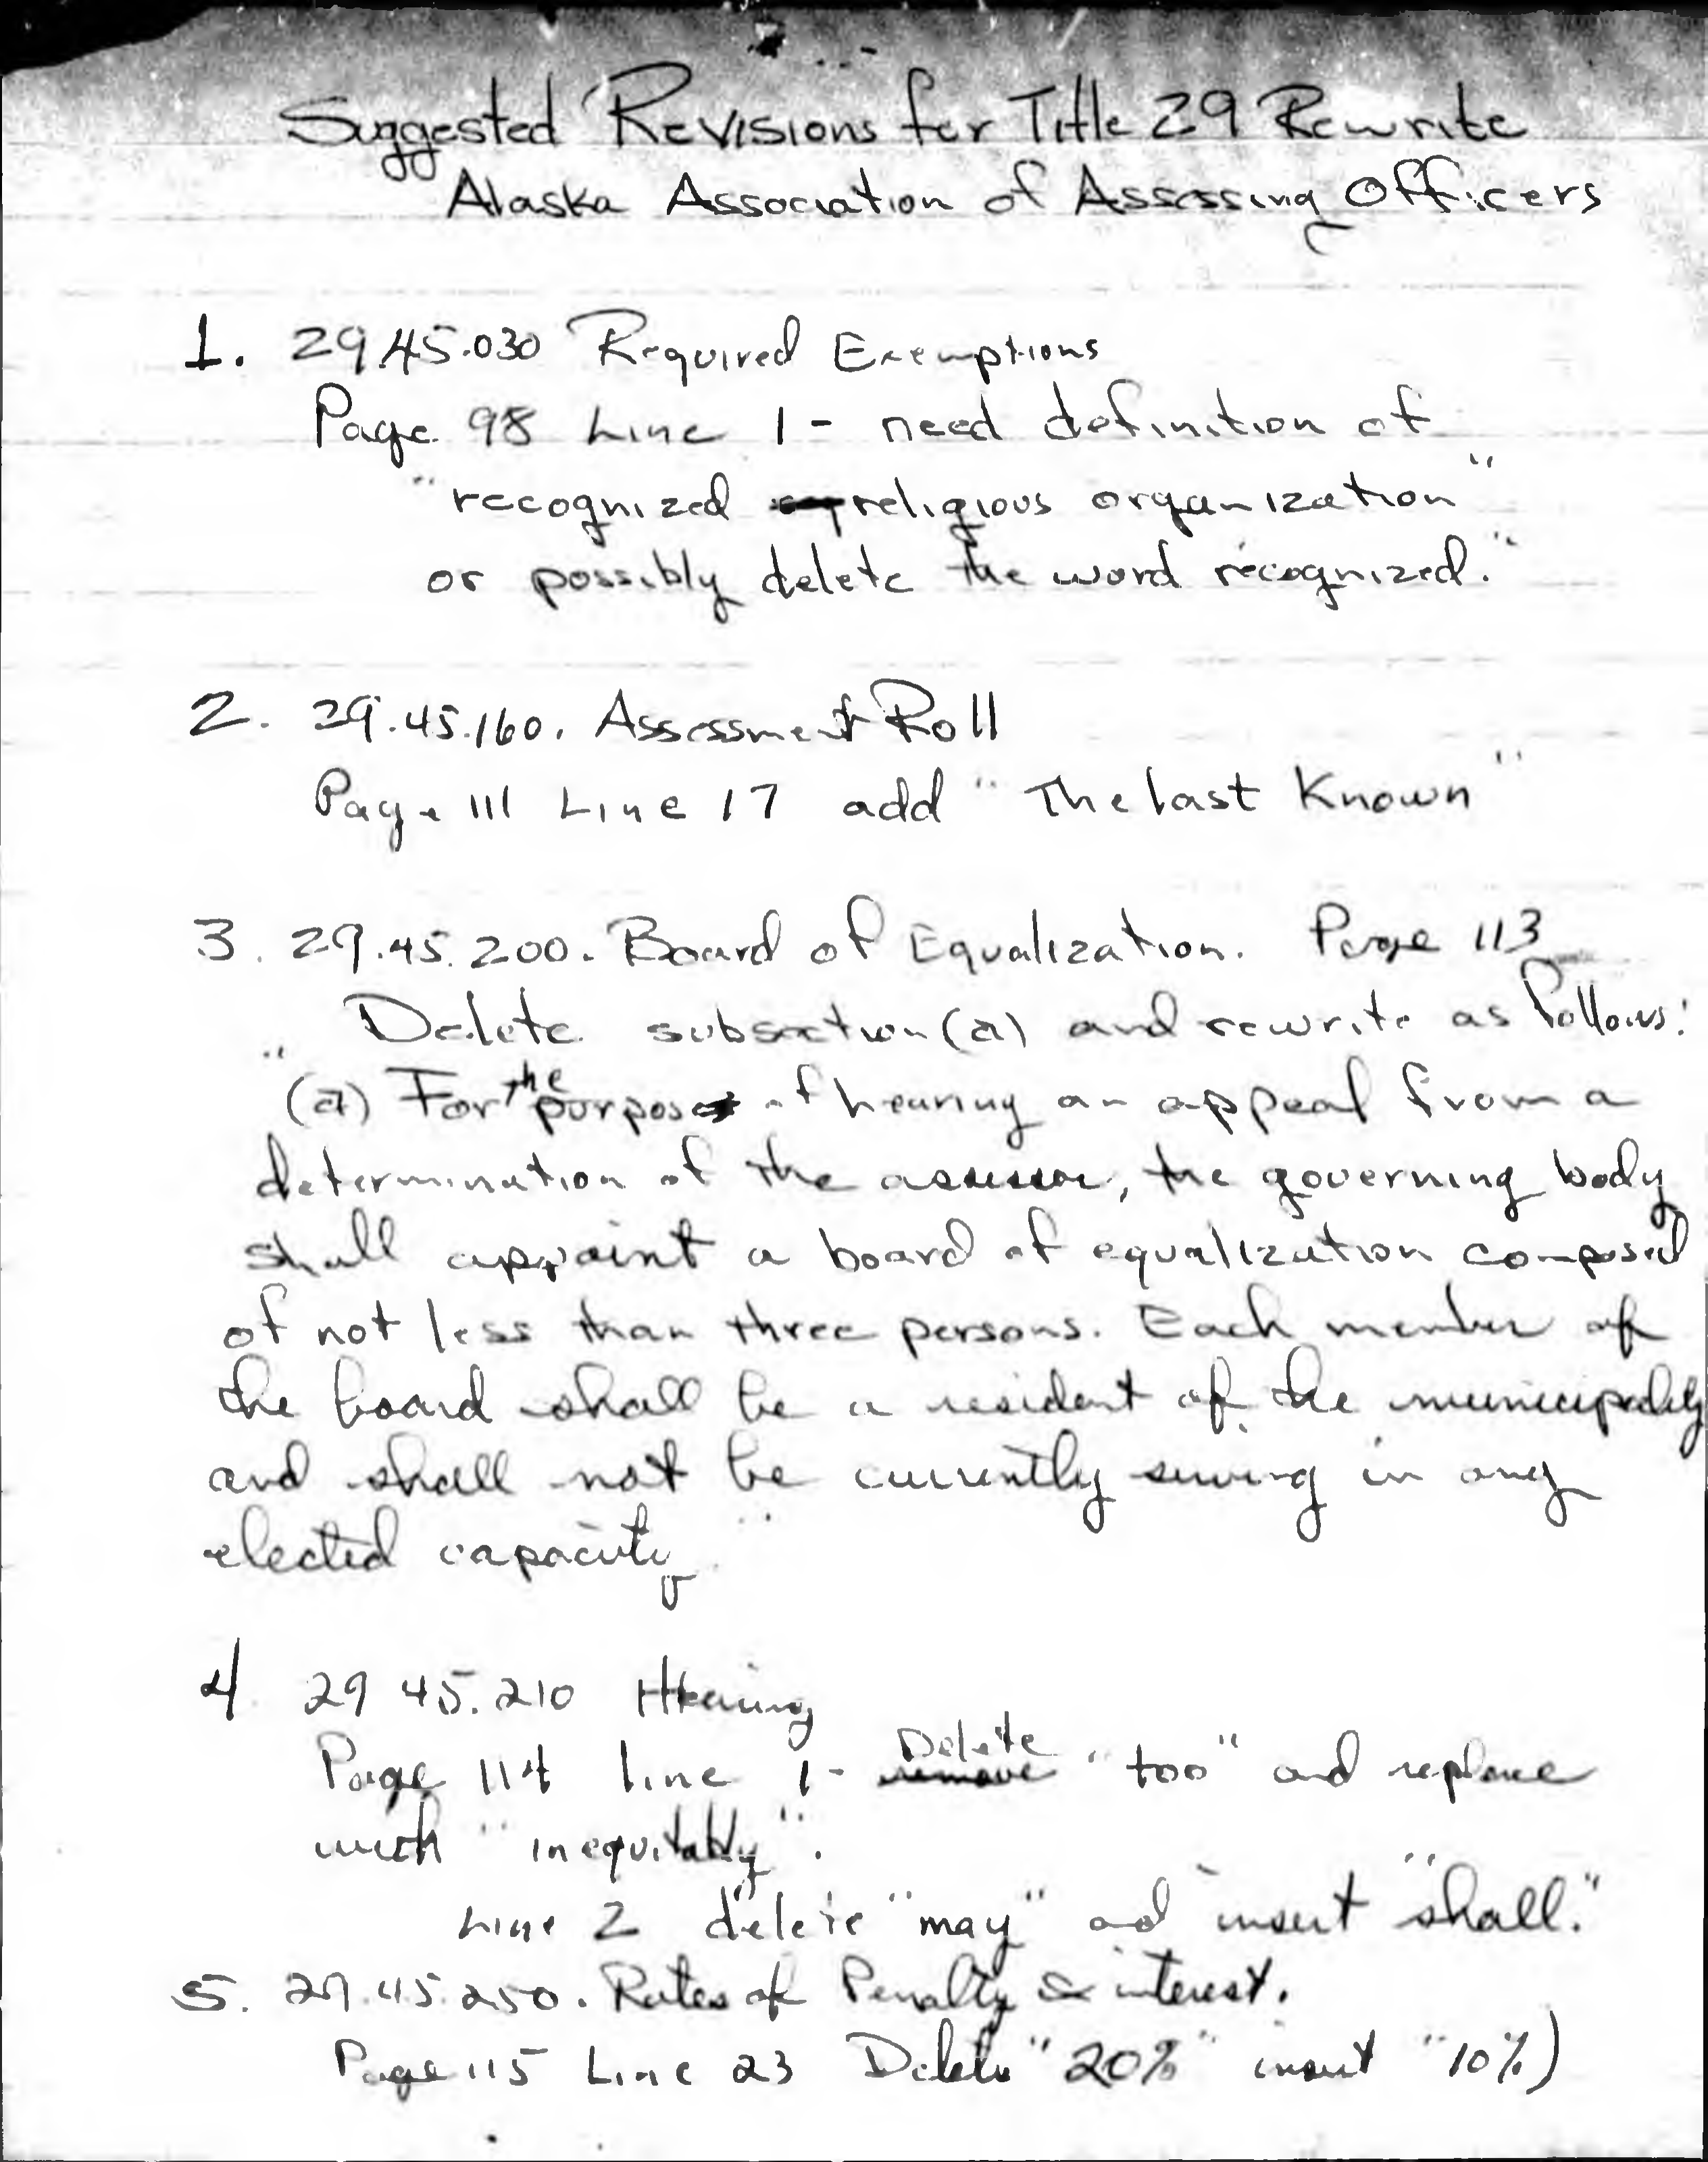 Suggested Revisions for Title 29 Rewrite
Alaska Association of Assessing Officers
1. 29.45.030 Required Exemptions
Page 98 Line 1 - need definition of
"recognized religious organization"
or possibly delete the word recognized."
2. 29.45.160. Assessment Roll
Page 111 Line 17 add "The last Known"
3. 29.45.200. Board of Equalization. Page 113
Delete subsection (a) and rewrite as follows:
"(a) For the purpose of hearing an appeal from a
determination of the assessor, the governing body
shall appoint a board of equalization composed
of not less than three persons. Each member of
the board shall be a resident of the municipality
and shall not be currently serving in any
elected capacity"
4 29 45.210 Hearing
Page 114 line 1 - Delete "too" and replace
with "inequitably".
Line 2 delete "may" and insert "shall."
5. 29.45.250. Rates of Penalty & interest.
Page 115 Line 23 Delete "20%" insert "10%)